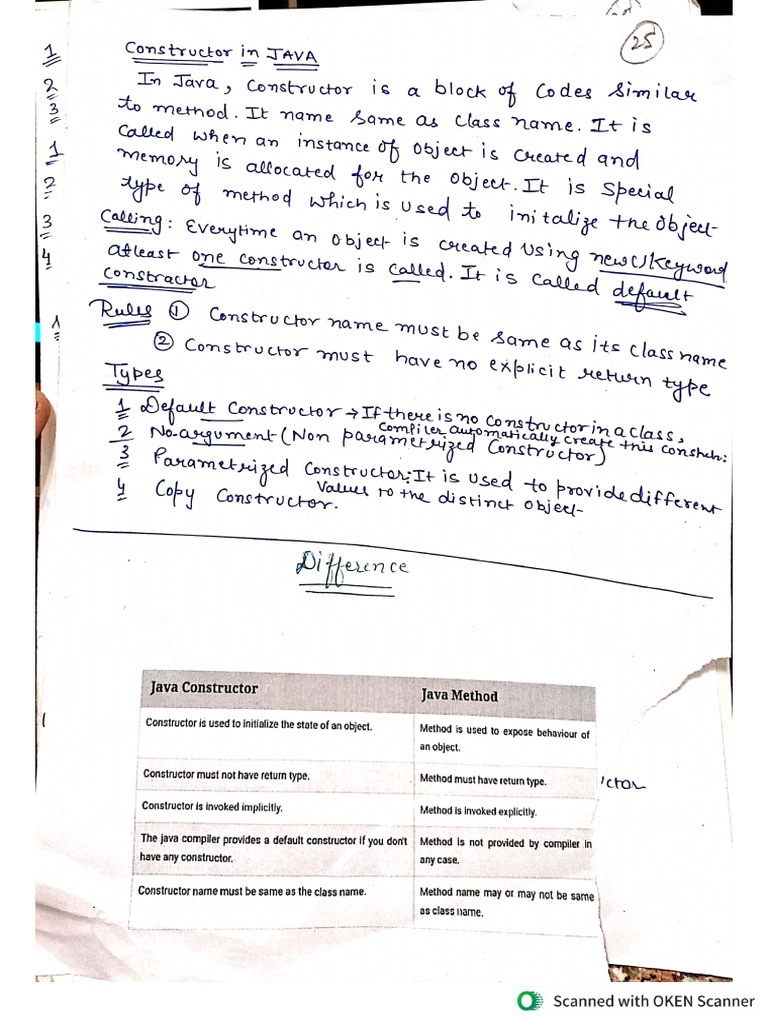 25
Constructor in JAVA
In Java, Constructor is a block of Codes Similar
to method. It name Same as Class name. It is
Called when an instance of Object is Created and
memory is allocated for the Object. It is Special
type of method which is used to initalize the Object
Calling: Everytime an Object is created using new() keyword
atleast one constructor is called. It is called default
constractor
Rules ① Constructor name must be same as its class name
② Constructor must have no explicit return type
Types
1 Default Constructor → If there is no constructor in a class,
Compiler automatically create this
2 No-argument (Non parametrized Constructor)
3 Parametrized Constructor: It is used to provide different
Values to the distinct object
4 Copy Constructor.
Difference
Java Constructor
Java Method
Constructor is used to initialize the state of an object.
Method is used to expose behaviour of
an object.
Constructor must not have return type.
Method must have return type.
ctor
Constructor is invoked implicitly.
Method is invoked explicitly.
The java compiler provides a default constructor if you don't
have any constructor.
Method is not provided by compiler in
any case.
Constructor name must be same as the class name.
Method name may or may not be same
as class name.
1
2
3
1
2
3
4
1
Scanned with OKEN Scanner